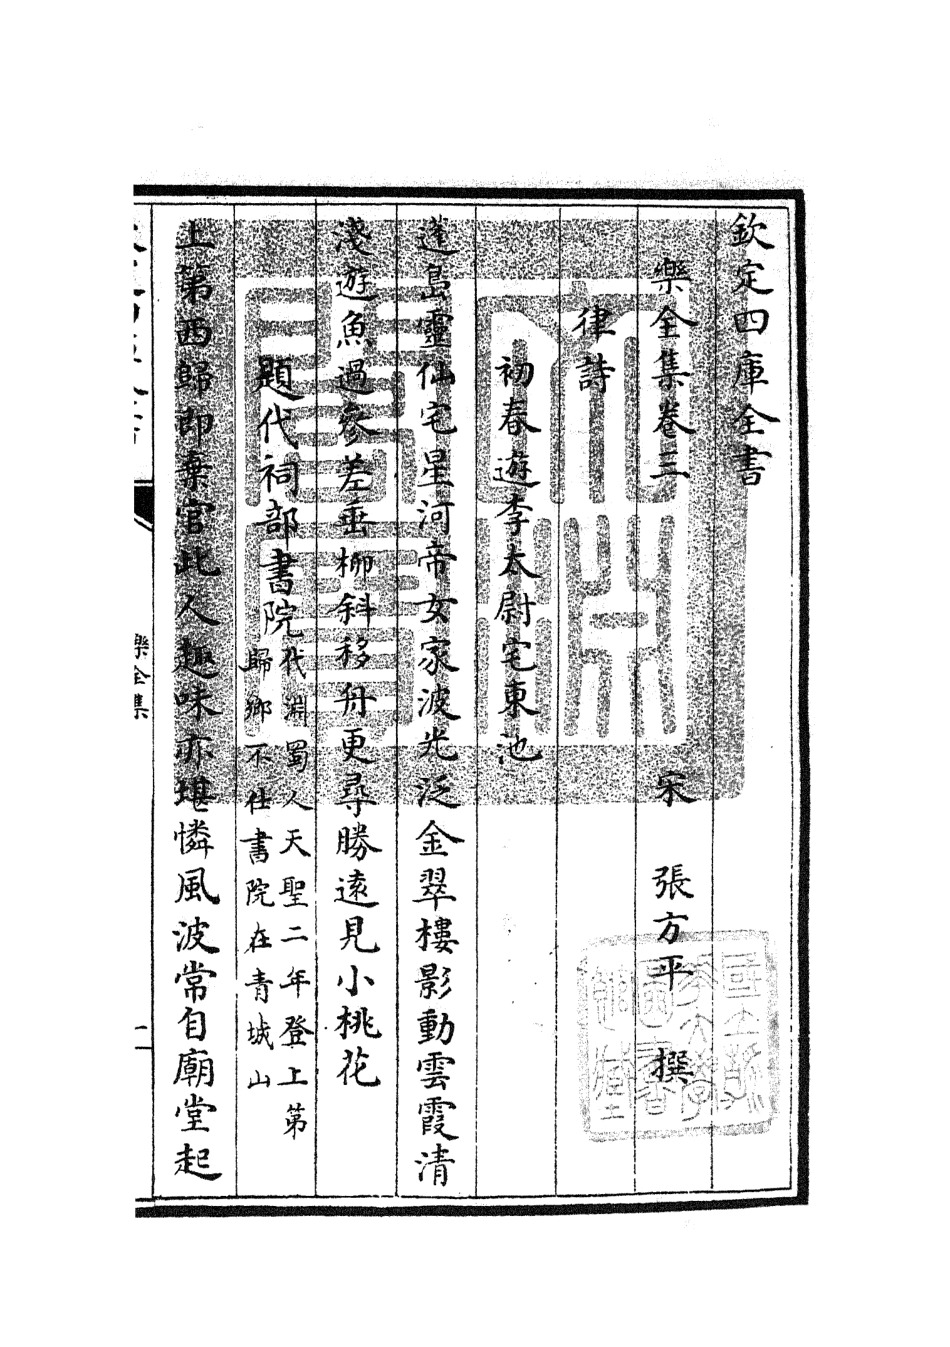 欽定四庫全書
樂全集卷三　宋　張方平　撰
律詩
初春遊李太尉宅東池
蓬島靈仙宅星河帝女家波光泛金翠樓影動雲霞清
淺遊魚過參差垂柳斜移舟更尋勝遠見小桃花
題代祠部書院代淵蜀人天聖二年登上第
歸鄉不仕書院在青城山
上第西歸即棄官此人趣味亦堪憐風波常自廟堂起
樂全集